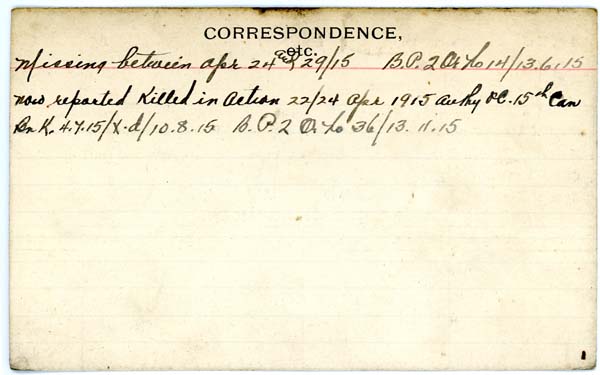 CORRESPONDENCE,
etc.
Missing between Apr 24 & 29/15 B.P. 2 Or. No 14/13.6.15
now reported Killed in Action 22/24 Apr 1915 Auth'y OC. 15th Can
Bn K. 4.7.15/X.d/10.8.15 B.P. 2 O. No 36/13.11.15